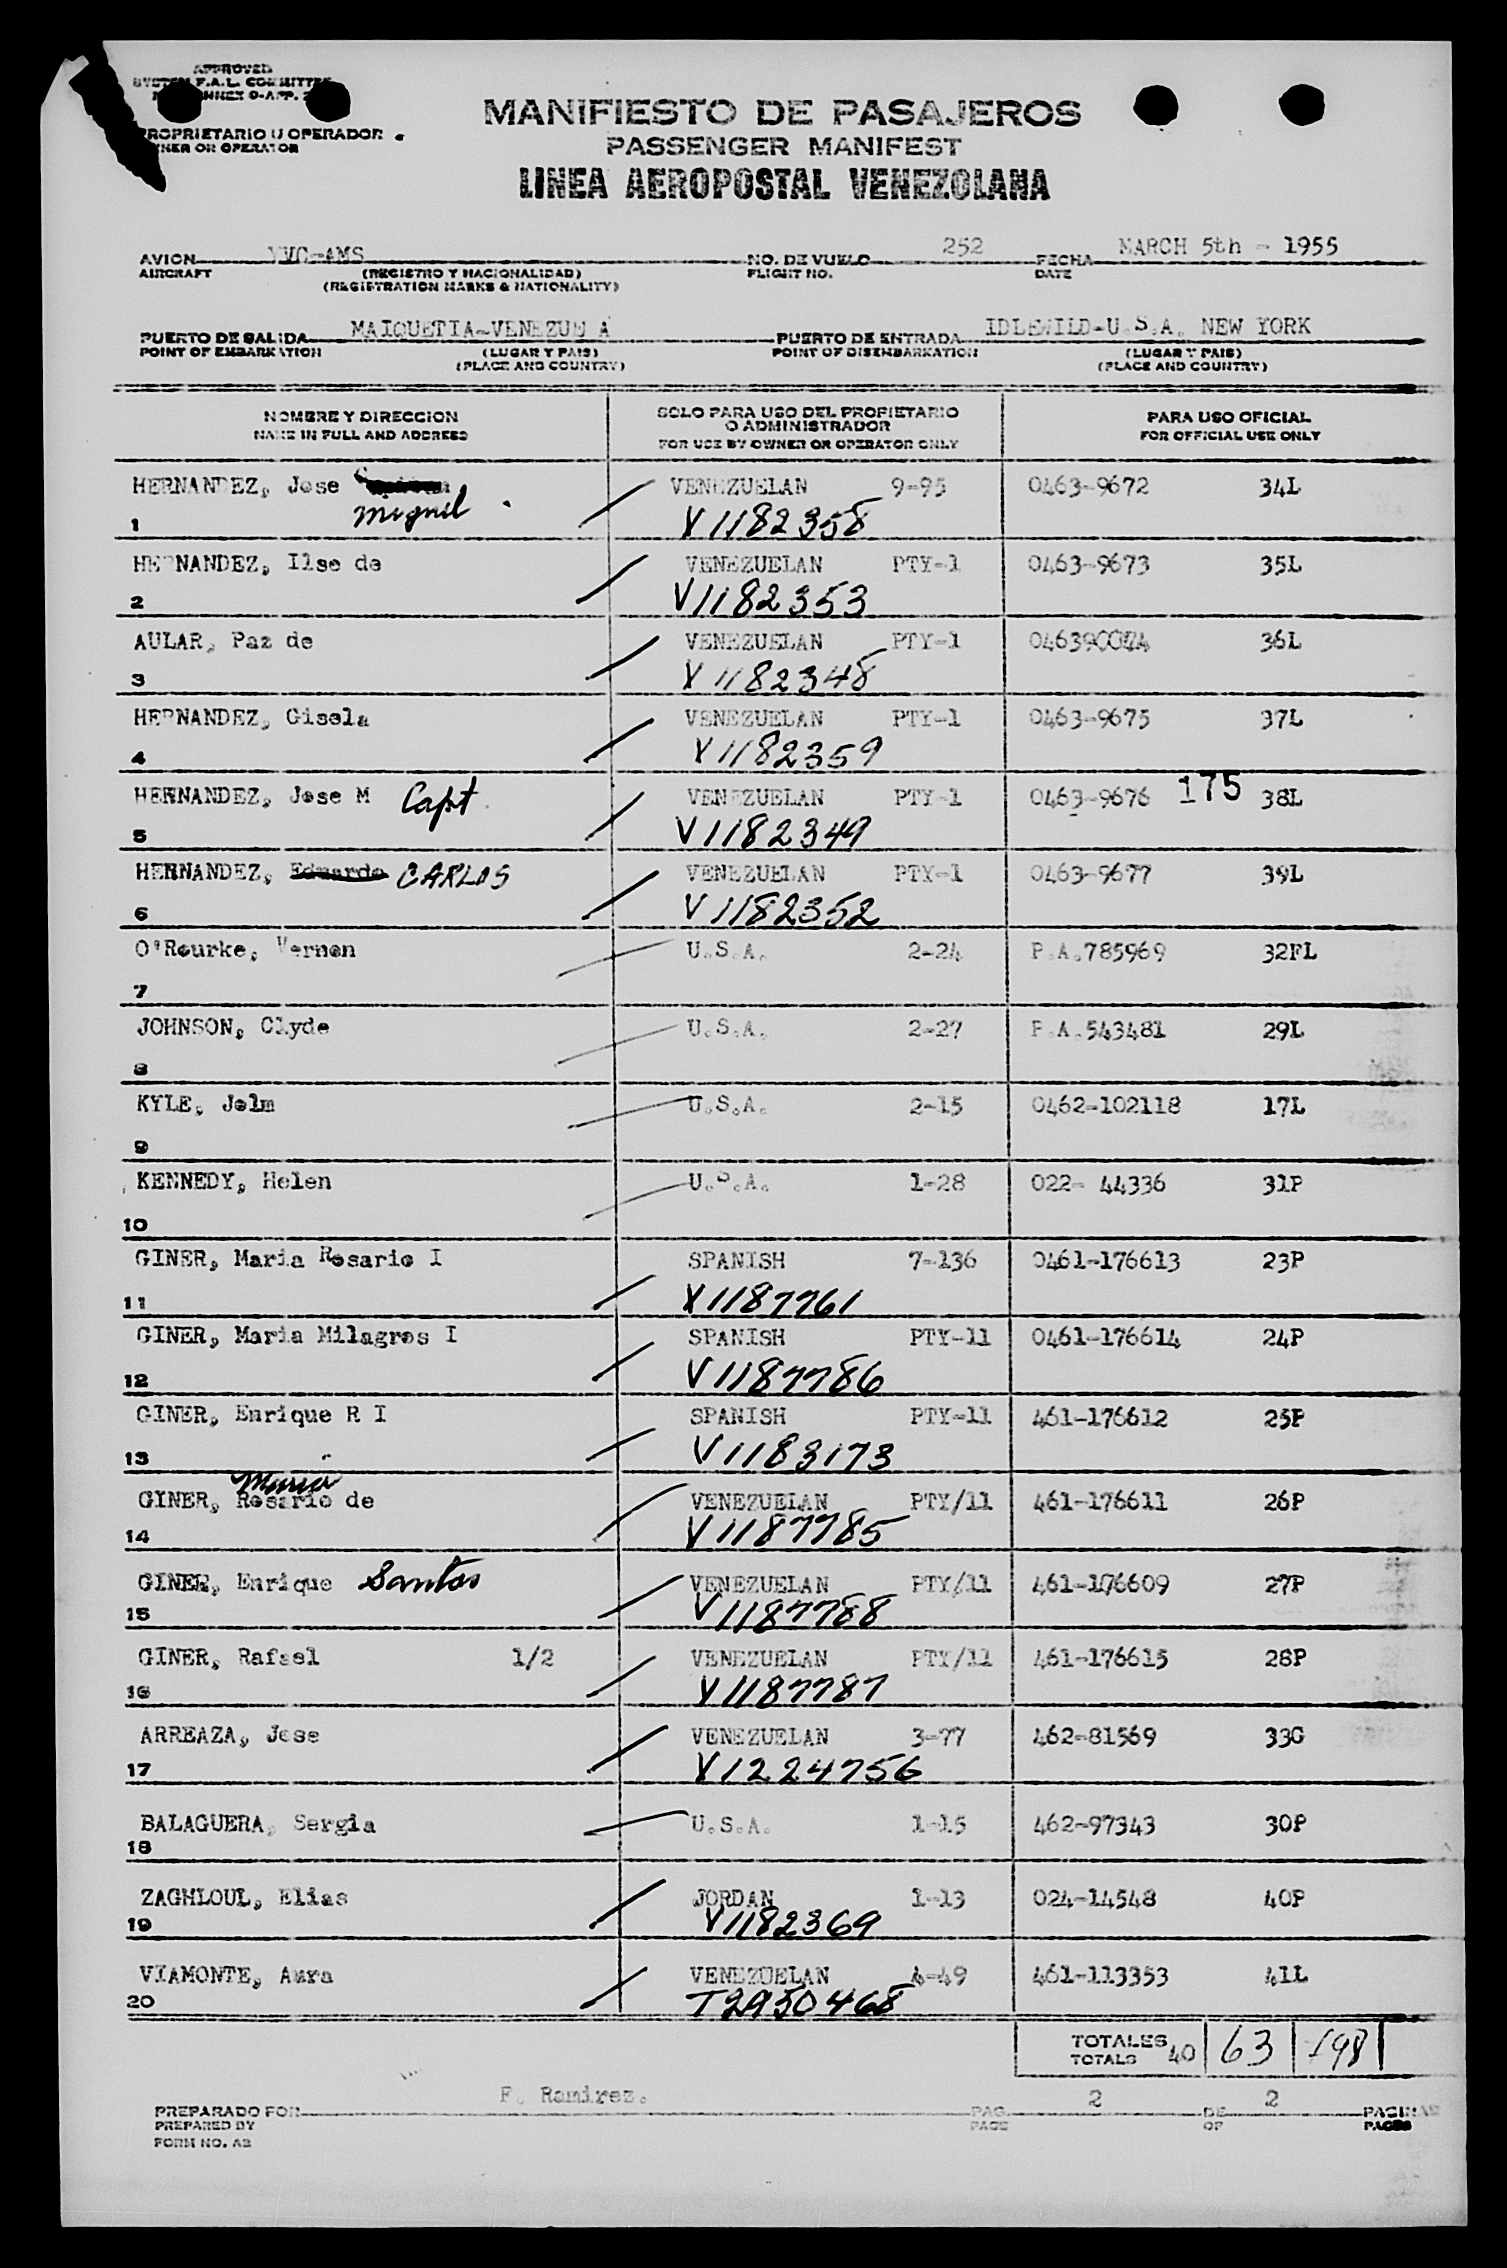 APPROVED
SYSTEM F.A.L. COMMITTEE
ANNEX 9-APP.
PROPRIETARIO U OPERADOR
OWNER OR OPERATOR
MANIFIESTO DE PASAJEROS
PASSENGER MANIFEST
LINEA AEROPOSTAL VENEZOLANA
AVION YVC-AMS NO. DE VUELO 252 FECHA MARCH 5th - 1955
AIRCRAFT (REGISTRO Y NACIONALIDAD) FLIGHT NO. DATE
(REGISTRATION MARKS & NATIONALITY)
PUERTO DE SALIDA MAIQUETIA-VENEZUE A PUERTO DE ENTRADA IDLEWILD-U.S.A. NEW YORK
POINT OF EMBARKATION (LUGAR Y PAIS) POINT OF DISEMBARKATION (LUGAR Y PAIS)
(PLACE AND COUNTRY) (PLACE AND COUNTRY)
NOMBRE Y DIRECCION SOLO PARA USO DEL PROPIETARIO PARA USO OFICIAL
O ADMINISTRADOR
NAME IN FULL AND ADDRESS FOR USE BY OWNER OR OPERATOR ONLY FOR OFFICIAL USE ONLY
HERNANDEZ, Jose VENEZUELAN 9-95 0463-9672 34L
1 Miguel V1182358
HERNANDEZ, Ilse de VENEZUELAN PTY-1 0463-9673 35L
2 V1182353
AULAR, Paz de VENEZUELAN PTY-1 36L
3 V1182348
HERNANDEZ, Gisela VENEZUELAN PTY-1 0463-9675 37L
4 V1182359
HERNANDEZ, Jose M Capt. VENEZUELAN PTY-1 0463-9676 175 38L
5 V1182349
HERNANDEZ, Eduardo CARLOS VENEZUELAN PTY-1 0463-9677 39L
6 V1182352
O'Rourke, Vernon U.S.A. 2-24 P.A.785969 32FL
7
JOHNSON, Clyde U.S.A. 2-27 P.A.543481 29L
8
KYLE, Jolm U.S.A. 2-15 0462-102118 17L
9
KENNEDY, Helen U.S.A. 1-28 022- 44336 31P
10
GINER, Maria Rosario I SPANISH 7-136 0461-176613 23P
11 V1187761
GINER, Maria Milagros I SPANISH PTY-11 0461-176614 24P
12 V1187786
GINER, Enrique R I SPANISH PTY-11 461-176612 25P
13 V1183173
Maria
GINER, Rosario de VENEZUELAN PTY/11 461-176611 26P
14 V1187785
GINER, Enrique Santos VENEZUELAN PTY/11 461-176609 27P
15 V1187788
GINER, Rafael 1/2 VENEZUELAN PTY/11 461-176615 28P
16 V1187787
ARREAZA, Jose VENEZUELAN 3-77 462-81569 33G
17 V1224756
BALAGUERA, Sergia U.S.A. 1-15 462-97343 30P
18
ZAGHLOUL, Elias JORDAN 1-13 024-14548 40P
19 V1182369
VIAMONTE, Aura VENEZUELAN 4-49 461-113353 41L
20 T2950468
TOTALES
TOTALS 40 63 198
PREPARADO POR F. Ramirez. PAG. 2 DE 2 PAGINAS
PREPARED BY PAGE OF PAGES
FORM NO. A2